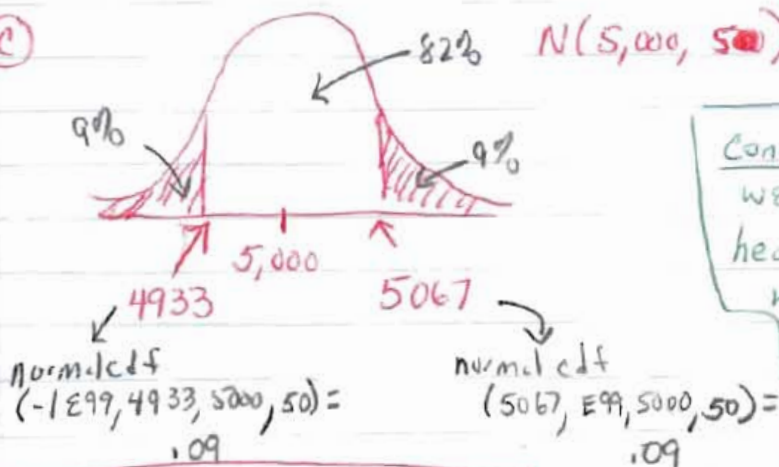 C
82%
N(5,000, 50)
9%
9%
5,000
4933
5067
normalcdf
(-1E99,4933,5000,50)=
.09
normal cdf
(5067, E99,5000,50)=
.09